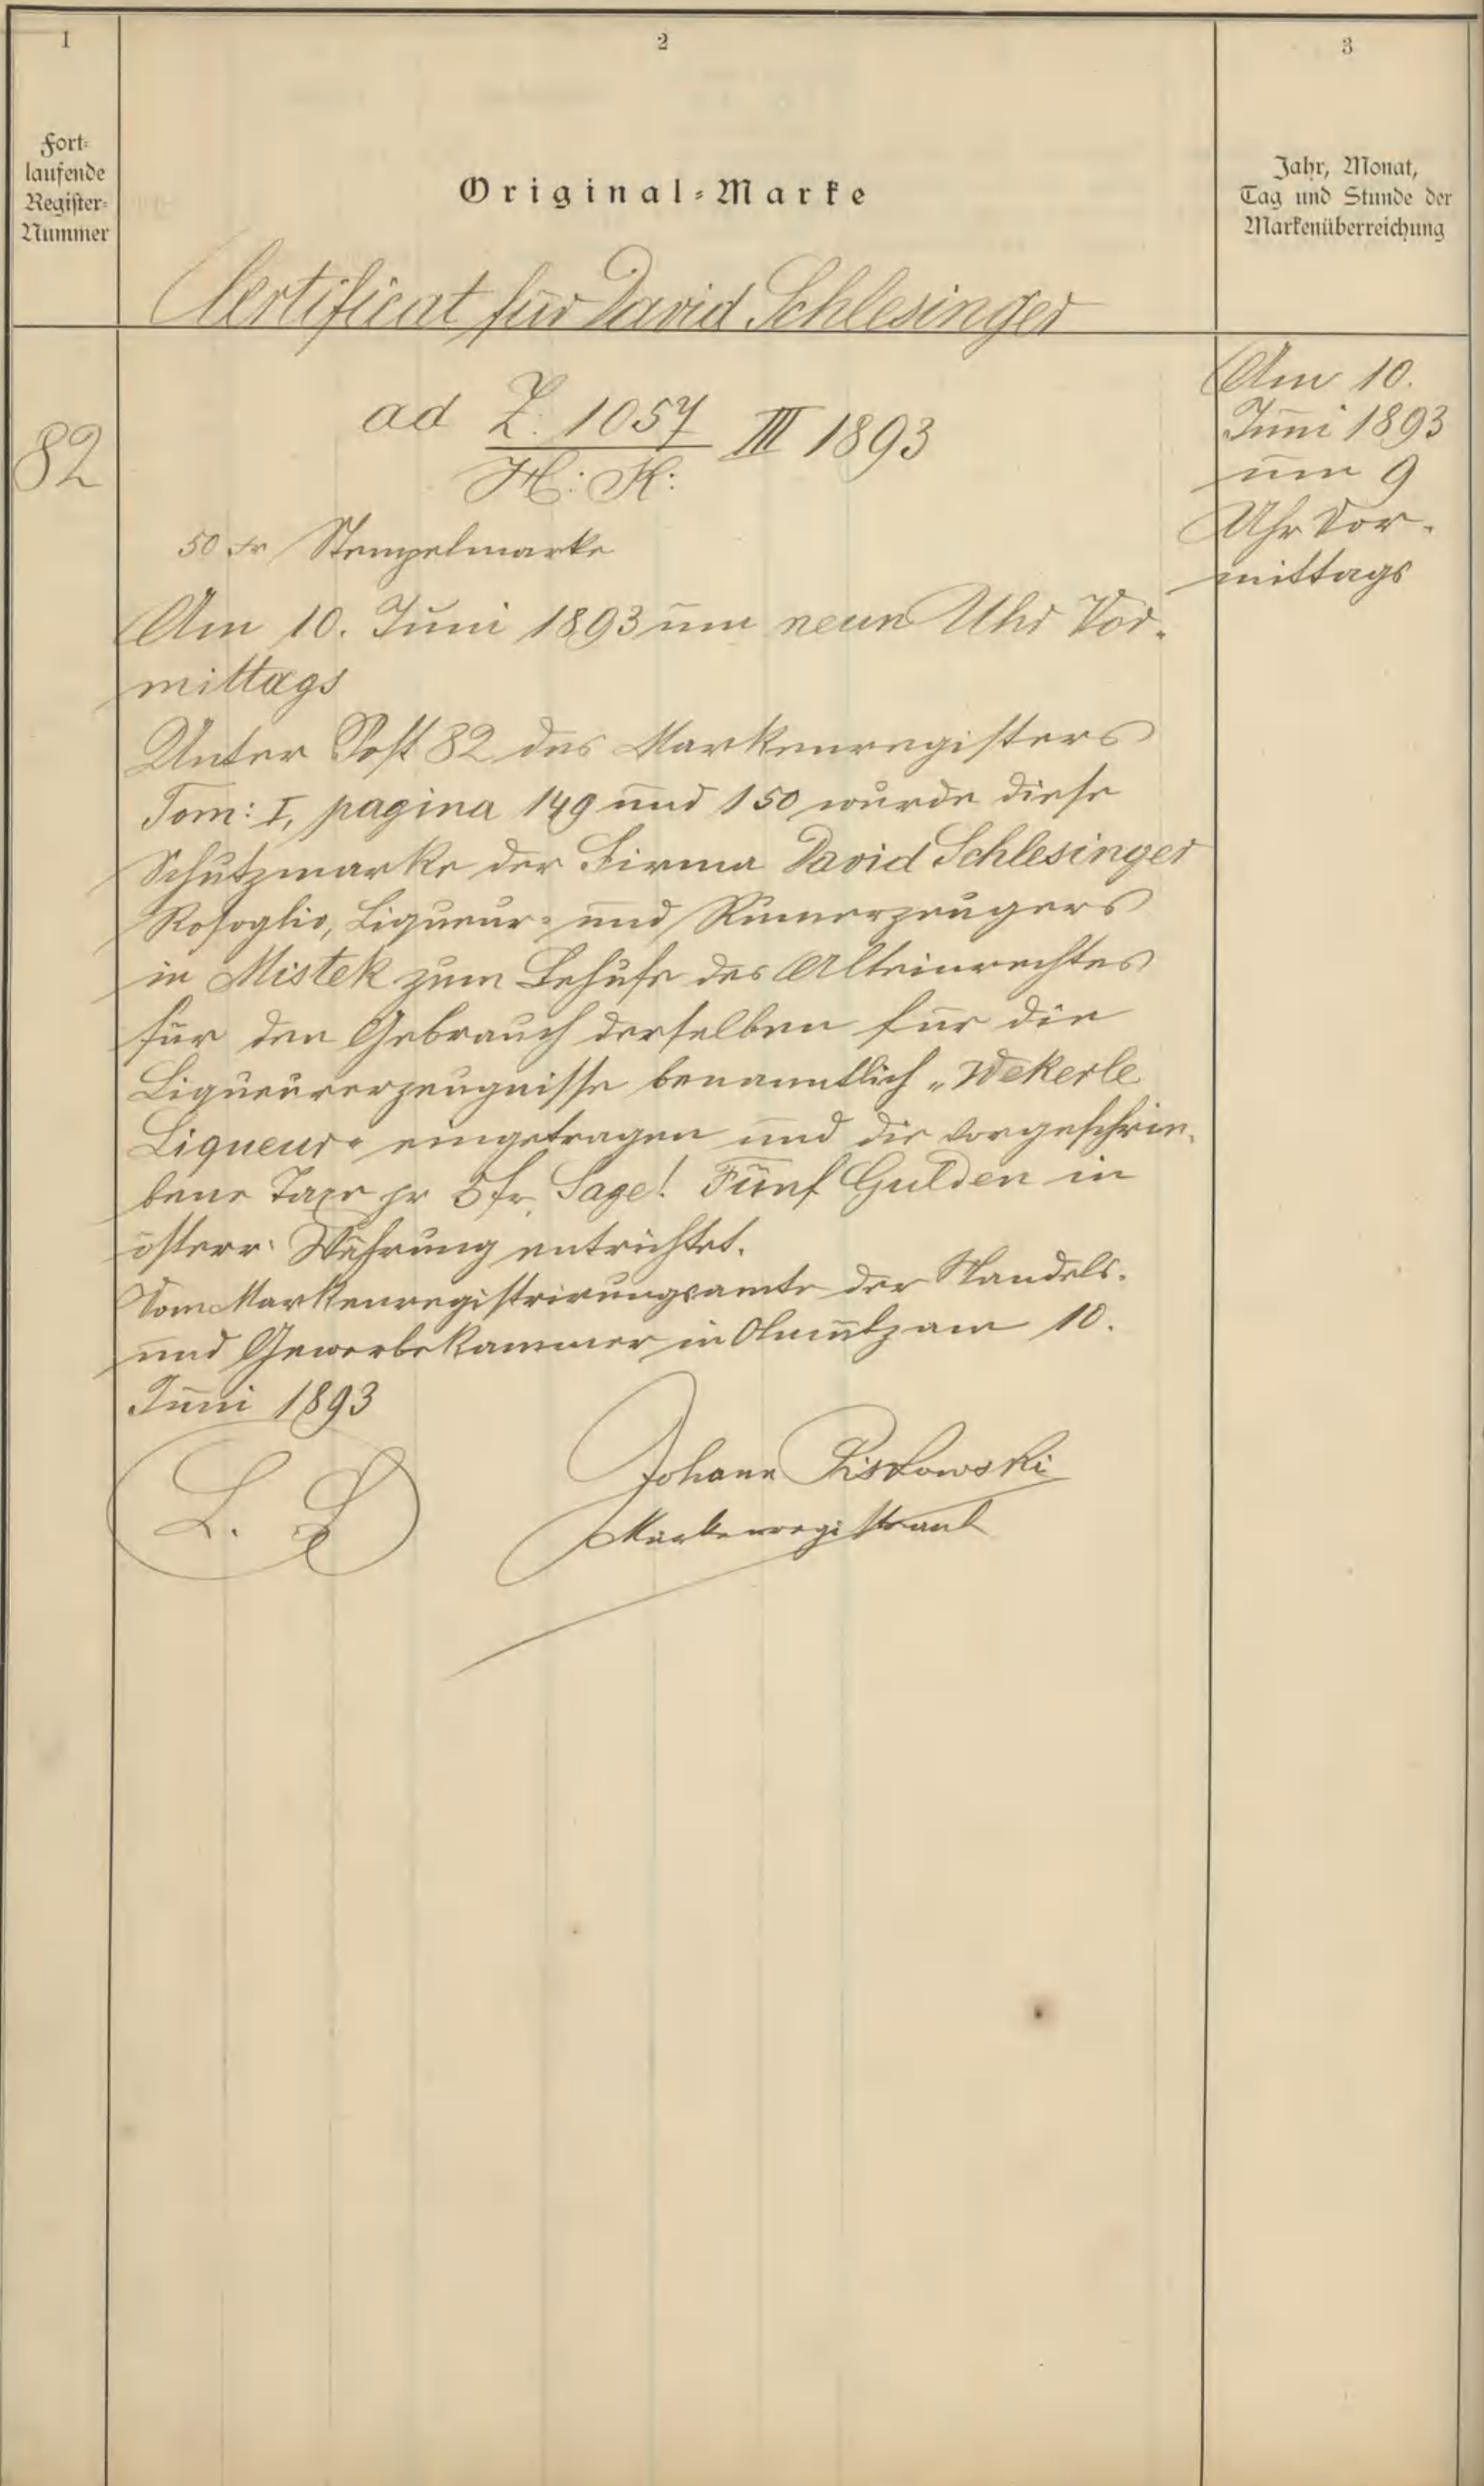 1
2
3
Fort-
laufende
Register-
Nummer
Original-Marke
Jahr, Monat,
Tag und Stunde der
Markenüberreichung
Certificat für David Schlesinger
82
ad Z. 1057 III 1893
H: K:
Am 10.
Juni 1893
um 9
Uhr Vor-
mittags
50 Stempelmarke
Am 10. Juni 1893 um neun Uhr Vor-
mittags
Unter Post 82 des Markenregisters
Tom: I, pagina 149 und 150 wurde diese
Schutzmarke der Firma David Schlesinger
Rosoglio, Liqueur- und Rumerzeugers
in Mistek zum Behufe des Alleinrechtes
für den Gebrauch derselben für die
Liqueurerzeugnisse benanntlich „Wekerle
Liqueur“ eingetragen und die vorgeschrie-
bene Taxe pr 5 fr. Sage! Fünf Gulden in
österr: Währung entrichtet.
Vom Markenregistrirungsamte der Handels-
und Gewerbekammer in Olmütz am 10.
Juni 1893
L. S
Johann
Markenregistrant